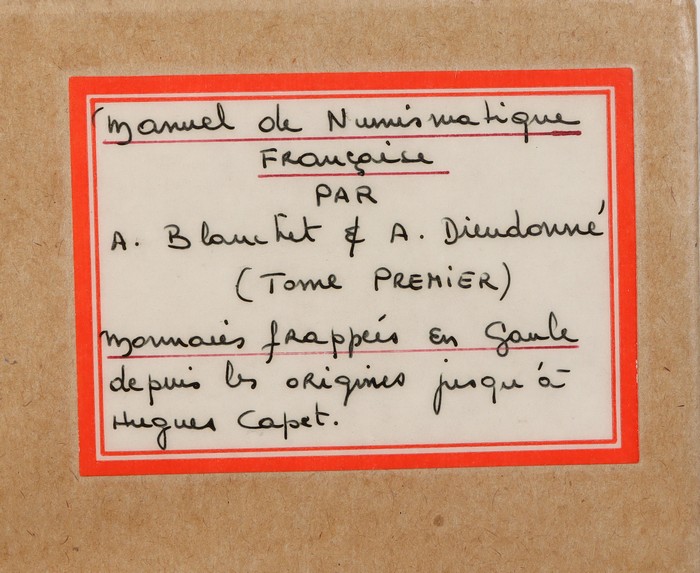 Manuel de Numismatique
Française
PAR
A. Blanchet & A. Dieudonné
(Tome PREMIER)
Monnaies frappées en Gaule
depuis les origines jusqu'à
Hugues Capet.